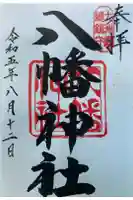 奉拝
八幡神社
令和五年八月十二日